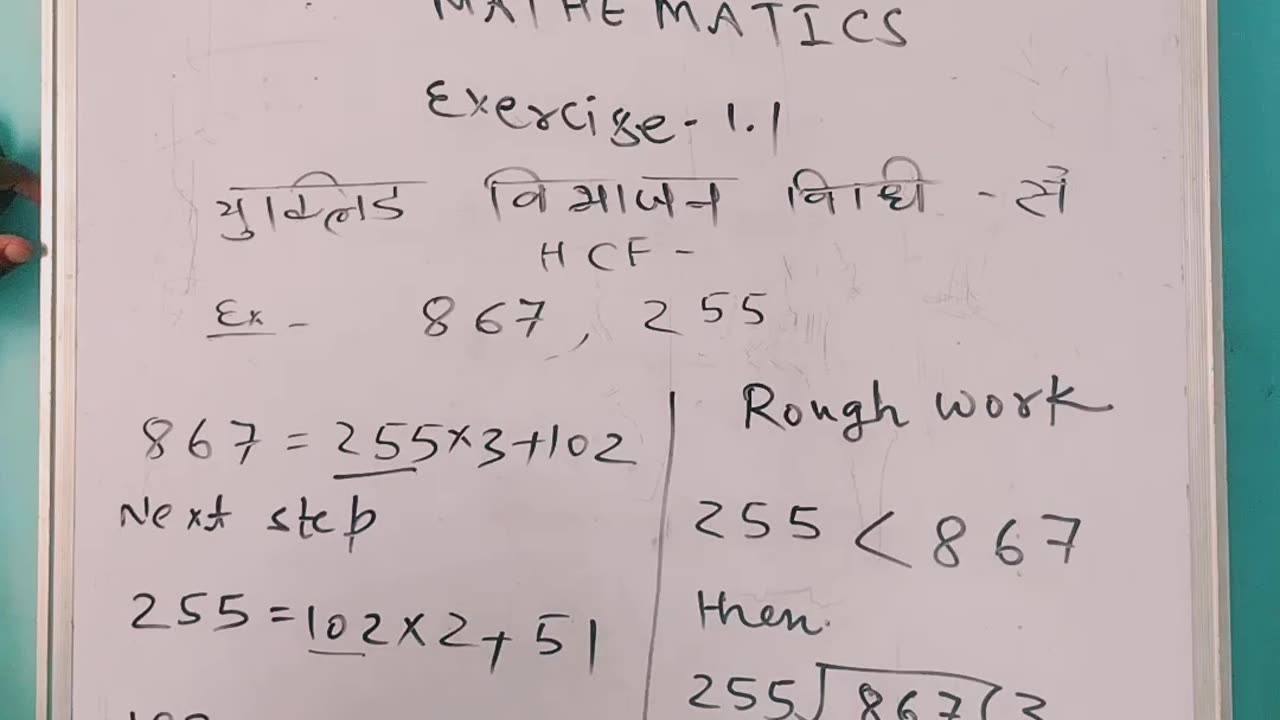 MATHEMATICS
Exercise - 1.1
युक्लिड विभाजन विधी - से
HCF -
Ex - 867, 255
867 = 255×3+102
Next step
255 = 102×2+51
Rough work
255 < 867
then.
255)867(3